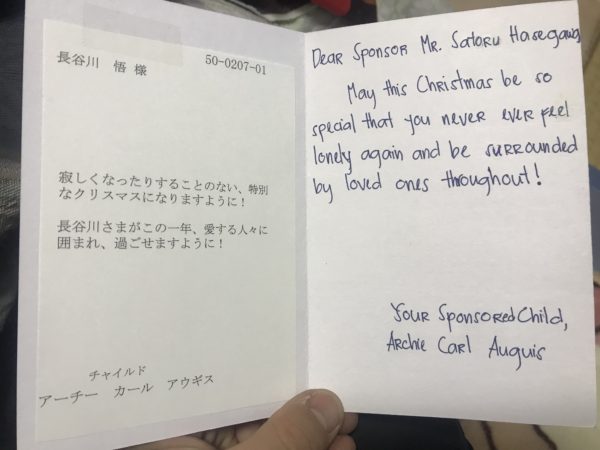 長谷川 悟 様
50-0207-01
寂しくなったりすることのない、特別
なクリスマスになりますように！
長谷川さまがこの一年、愛する人々に
囲まれ、過ごせますように！
チャイルド
アーチー カール アウギス
Dear Sponsor Mr. Satoru Hasegawa,
May this Christmas be so
special that you never ever feel
lonely again and be surrounded
by loved ones throughout!
Your Sponsored Child,
Archie Carl Auguis